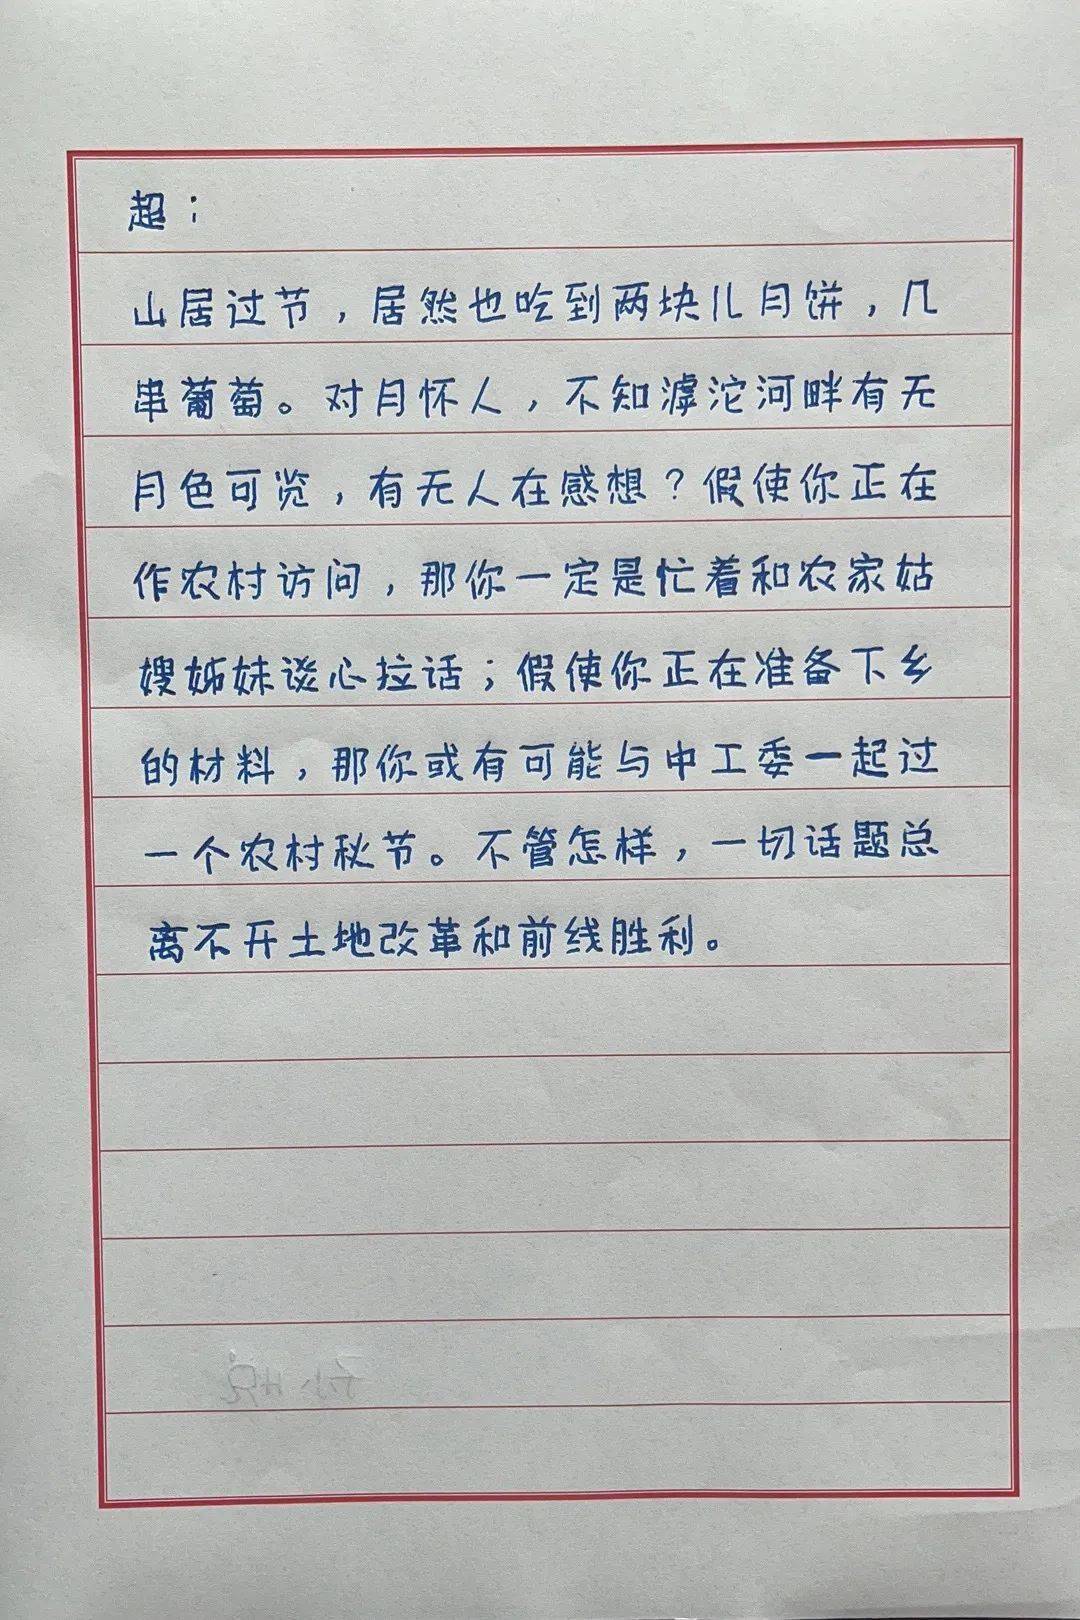 超：
山居过节，居然也吃到两块儿月饼，几
串葡萄。对月怀人，不知滹沱河畔有无
月色可览，有无人在感想？假使你正在
作农村访问，那你一定是忙着和农家姑
嫂姊妹谈心拉话；假使你正在准备下乡
的材料，那你或有可能与中工委一起过
一个农村秋节。不管怎样，一切话题总
离不开土地改革和前线胜利。